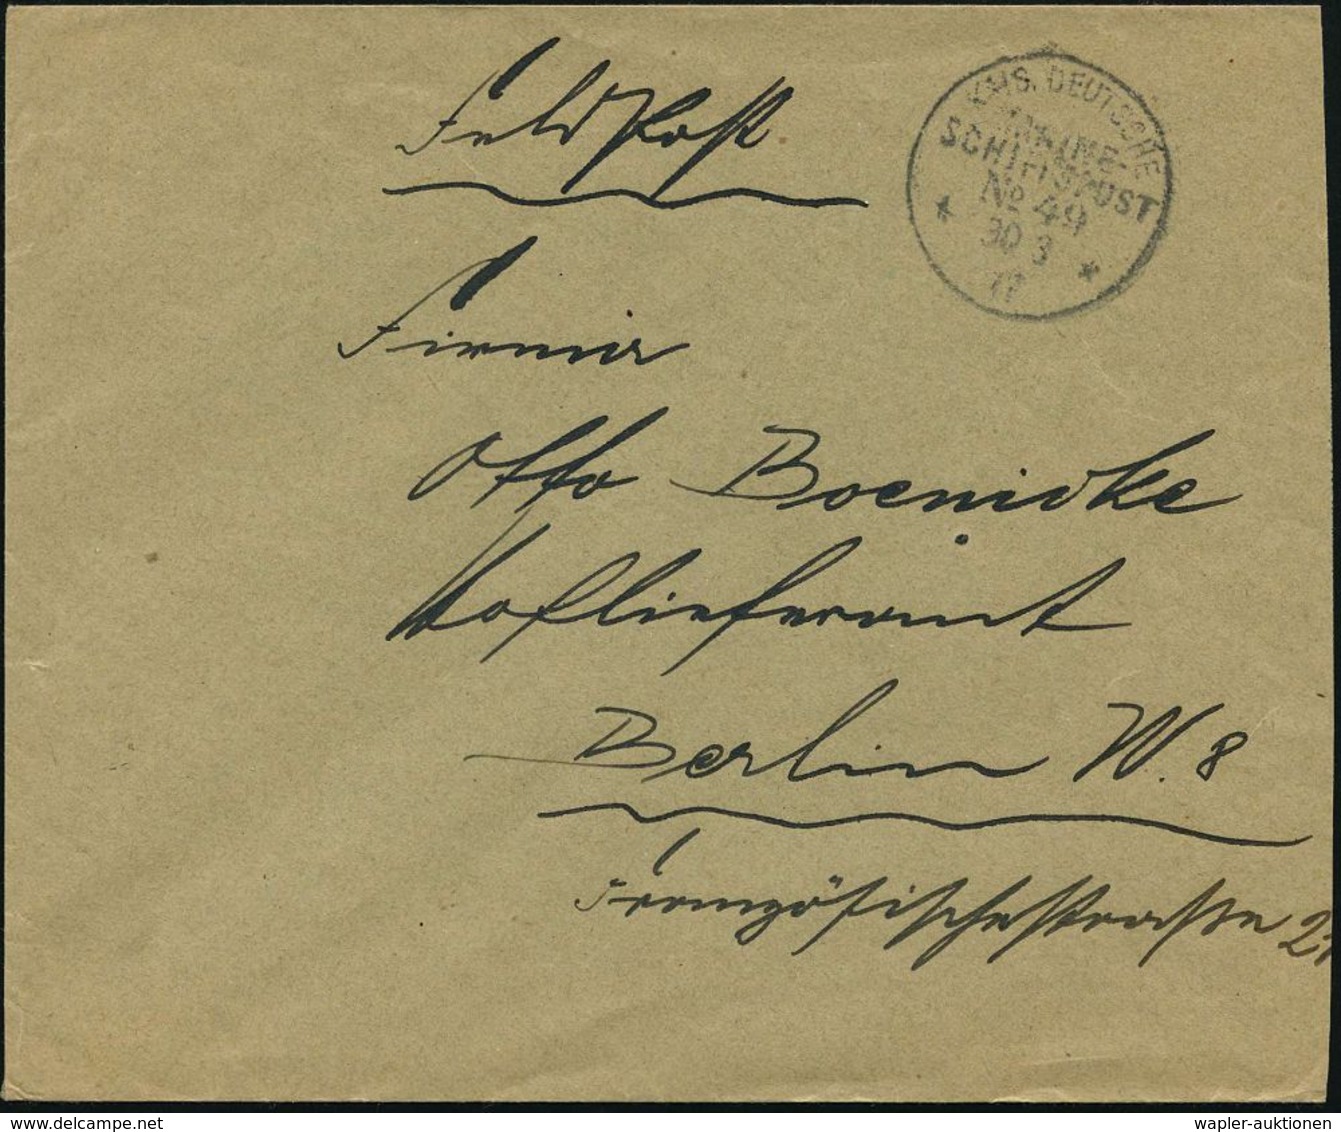 Feldpost
KAIS. DEUTSCHE
MARINE-
SCHIFFSPOST
No 49
30 3
17
Firma
Otto Boenicke
Hoflieferant
Berlin W. 8
Französischestraße 21
wapler-auktionen